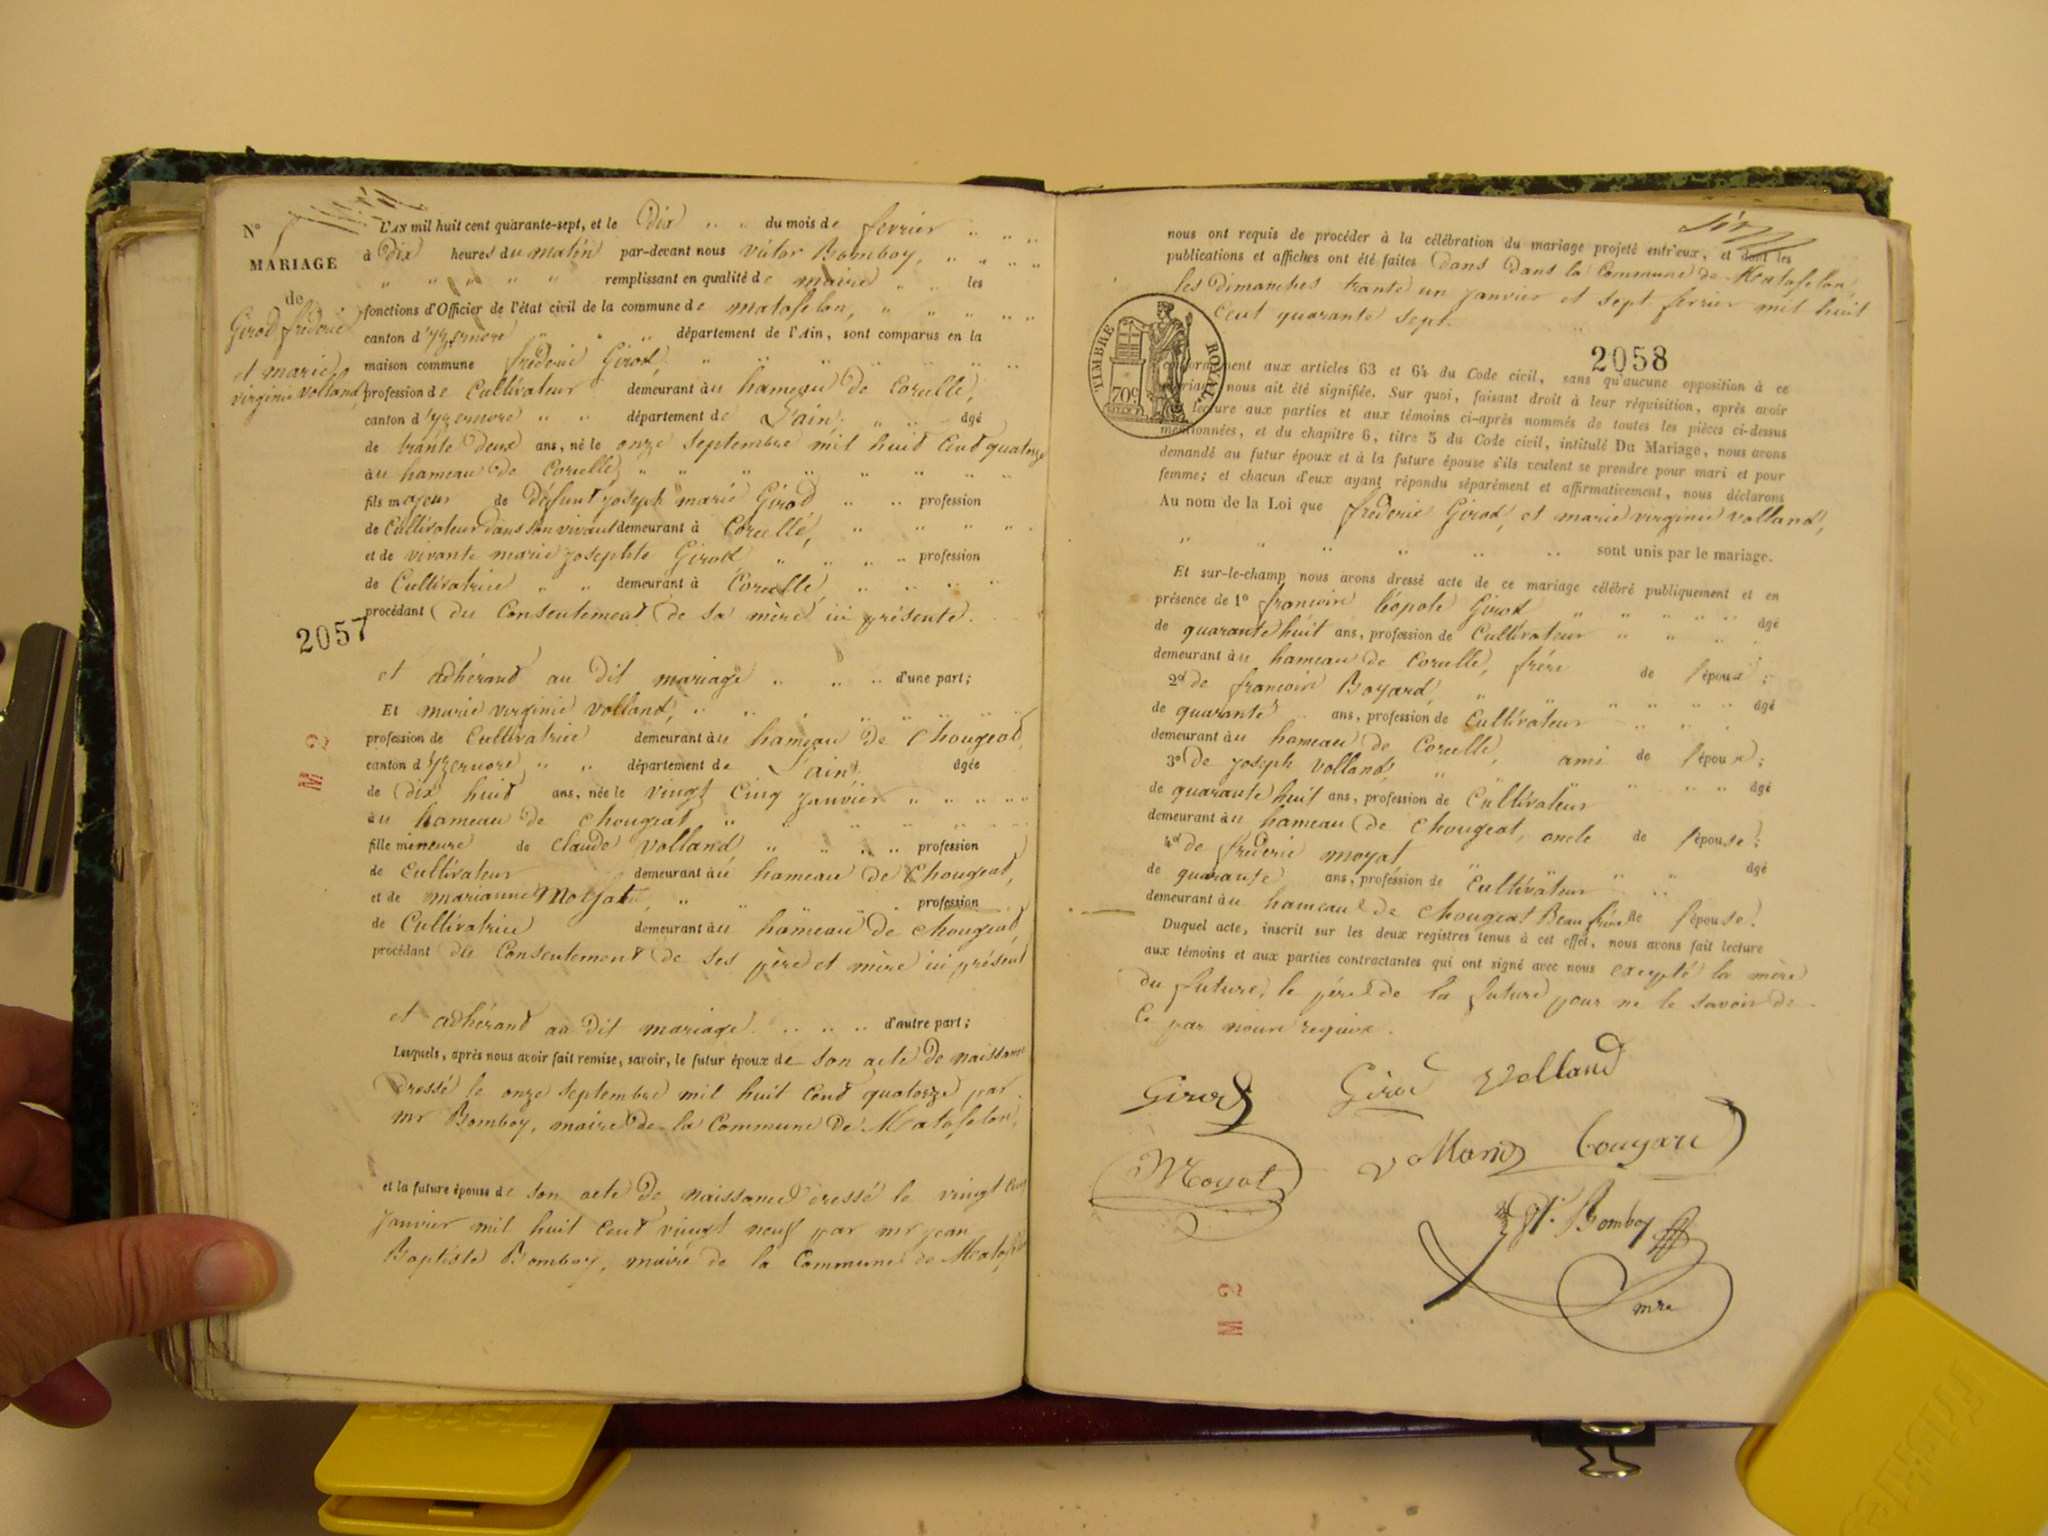 N°
MARIAGE
de
Girod frédéric
et marie
virginie Volland
L'AN mil huit cent quarante-sept, et le Dix " " du mois de fevrier " " "
à Dix heures du matin par-devant nous victor Bomboy, " " " "
" " " " " remplissant en qualité de maire " " les
fonctions d'Officier de l'état civil de la commune de matafelon, " " " " "
canton d'yzernore " " " département de l'Ain, sont comparus en la
maison commune fréderic Girod, " " " " "
profession de Cultivateur demeurant àu hameau de Corcelle,
canton d'yzernore " " département de L'ain. " " âgé
de trante deux ans, né le onze septembre mil huit Cent quatorze
àu hameau de Corcelle, " " " " " "
fils majeur de Défunt joseph marie Girod " " profession
de Cultivateur dans son vivant demeurant à Corcelle, " " " "
et de vivante marie josephte Girod, " " " " profession
de Cultivatrice " " demeurant à Corcelle, " " " "
procédant du Consentement de sa mère ici présente.
2057
et adhérant au Dit mariage " " " d'une part;
Et marie virginie Volland, " " " " " "
profession de Cultivatrice demeurant àu hameau de Chougeat,
canton d'yzernore " " département de L'ain. âgée
de dix huit ans, née le vingt Cinq janvier " " " "
àu hameau de Chougeat " " " " " "
fille mineure de Claude Volland " " " " profession
de Cultivateur demeurant àu hameau de Chougeat,
et de marianne Moyat, " " " profession
de Cultivatrice demeurant àu hameau de Chougeat,
procédant du Consentement de ses père et mère ici présent
et adhérant au Dit mariage. " " " d'autre part;
Lesquels, après nous avoir fait remise, savoir, le futur époux de son acte de naissance
Dressé le onze septembre mil huit Cent quatorze par
mr Bomboy, maire de la Commune de Matafelon,
et la future épouse de son acte de naissance dressé le vingt Cinq
janvier mil huit Cent vingt neuf par mr jean
Baptiste Bomboy, maire de la Commune de Matafelon
M 2
nous ont requis de procéder à la célébration du mariage projeté entr'eux, et dont les
publications et affiches ont été faites dans dans la Commune de Matafelon,
les Dimanches trante un janvier et sept fevrier mil huit
Cent quarante sept.
TIMBRE ROYAL
70c
2058
conformément aux articles 63 et 64 du Code civil, sans qu'aucune opposition à ce
mariage nous ait été signifiée. Sur quoi, faisant droit à leur réquisition, après avoir
lecture aux parties et aux témoins ci-après nommés de toutes les pièces ci-dessus
mentionnées, et du chapitre 6, titre 5 du Code civil, intitulé Du Mariage, nous avons
demandé au futur époux et à la future épouse s'ils veulent se prendre pour mari et pour
femme; et chacun d'eux ayant répondu séparément et affirmativement, nous déclarons
Au nom de la Loi que fréderic Girod, et marie virginie Volland,
" " " " " " sont unis par le mariage.
Et sur-le-champ nous avons dressé acte de ce mariage célébré publiquement et en
présence de 1° françois Girod " " " " " âgé
de quarante huit ans, profession de Cultivateur " " " "
demeurant àu hameau de Corcelle, frère de l'époux;
2° de françois Boyard, " " " " " âgé
de quarante " ans, profession de Cultivateur " " "
demeurant àu hameau de Corcelle, ami de l'époux;
3° de joseph Volland, " " " " âgé
de quarante huit ans, profession de Cultivateur
demeurant àu hameau de Chougeat, oncle de l'épouse;
4° de fréderic moyat " âgé
de quarante ans, profession de Cultivateur " "
demeurant àu hameau de Chougeat Beau frère de l'épouse.
Duquel acte, inscrit sur les deux registres tenus à cet effet, nous avons fait lecture
aux témoins et aux parties contractantes qui ont signé avec nous excepté la mère
du future, le père de la future pour ne le savoir de
Ce par nous requis.
Girod Girod Volland
Moyat Volland Bouyard
Bomboy
mre
M 2